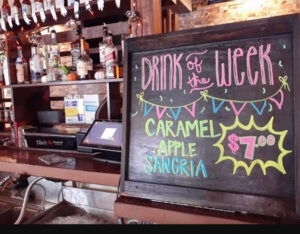 DRINK of the WEEK
CARAMEL
APPLE
SANGRIA
$7.00